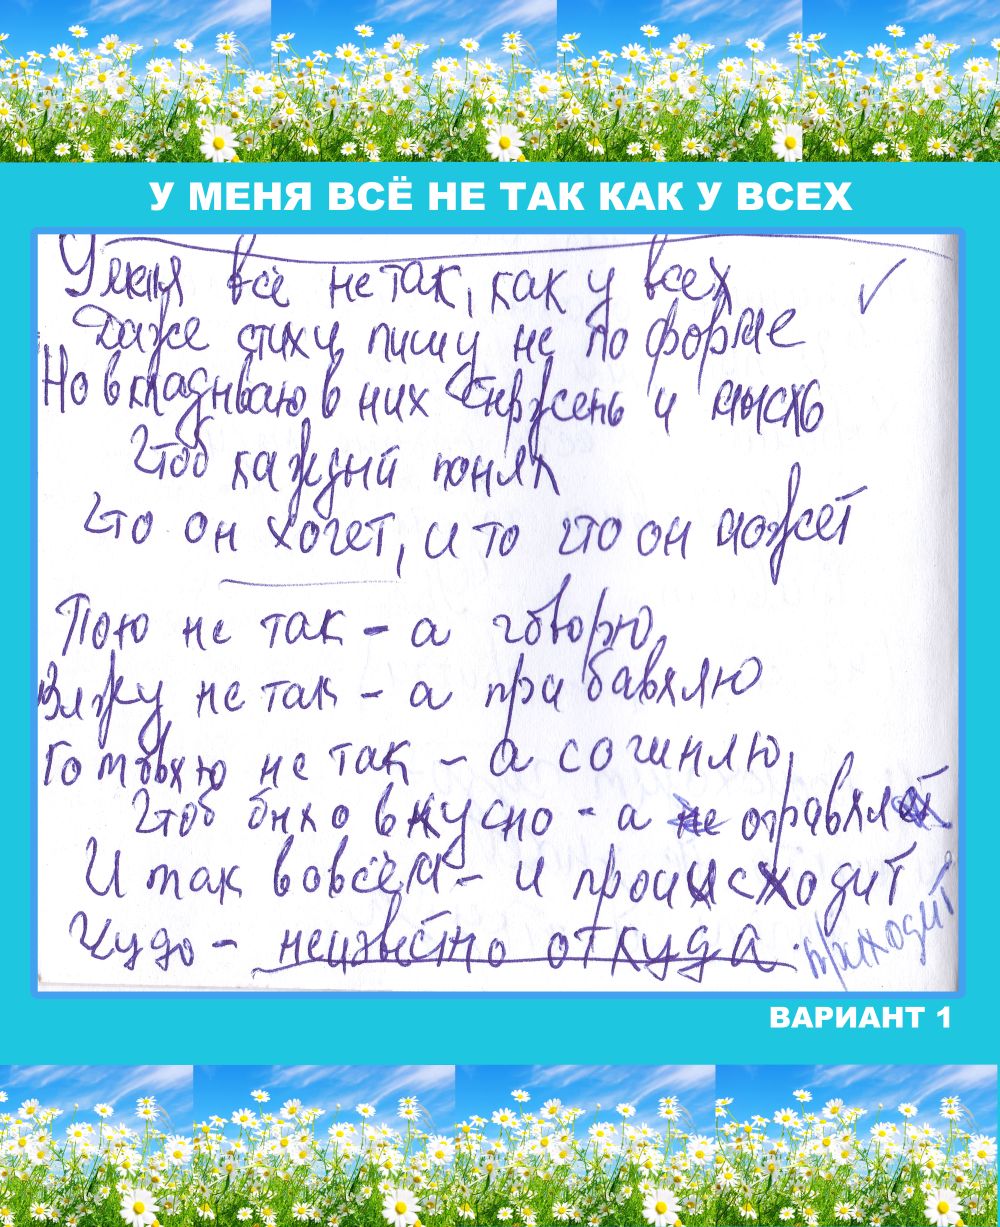 У МЕНЯ ВСЁ НЕ ТАК КАК У ВСЕХ
У меня всё не так, как у всех
Даже стихи пишу не по форме
Но вкладываю в них стержень и мысль
Чтоб каждый понял
Что он хочет, и то что он может
Пою не так – а говорю,
Вяжу не так – а прибавляю
Готовлю не так – а сочиняю,
Чтоб было вкусно – а не отравил
И так во всём – и происходит
Чудо – неизвестно откуда.
приходит
ВАРИАНТ 1